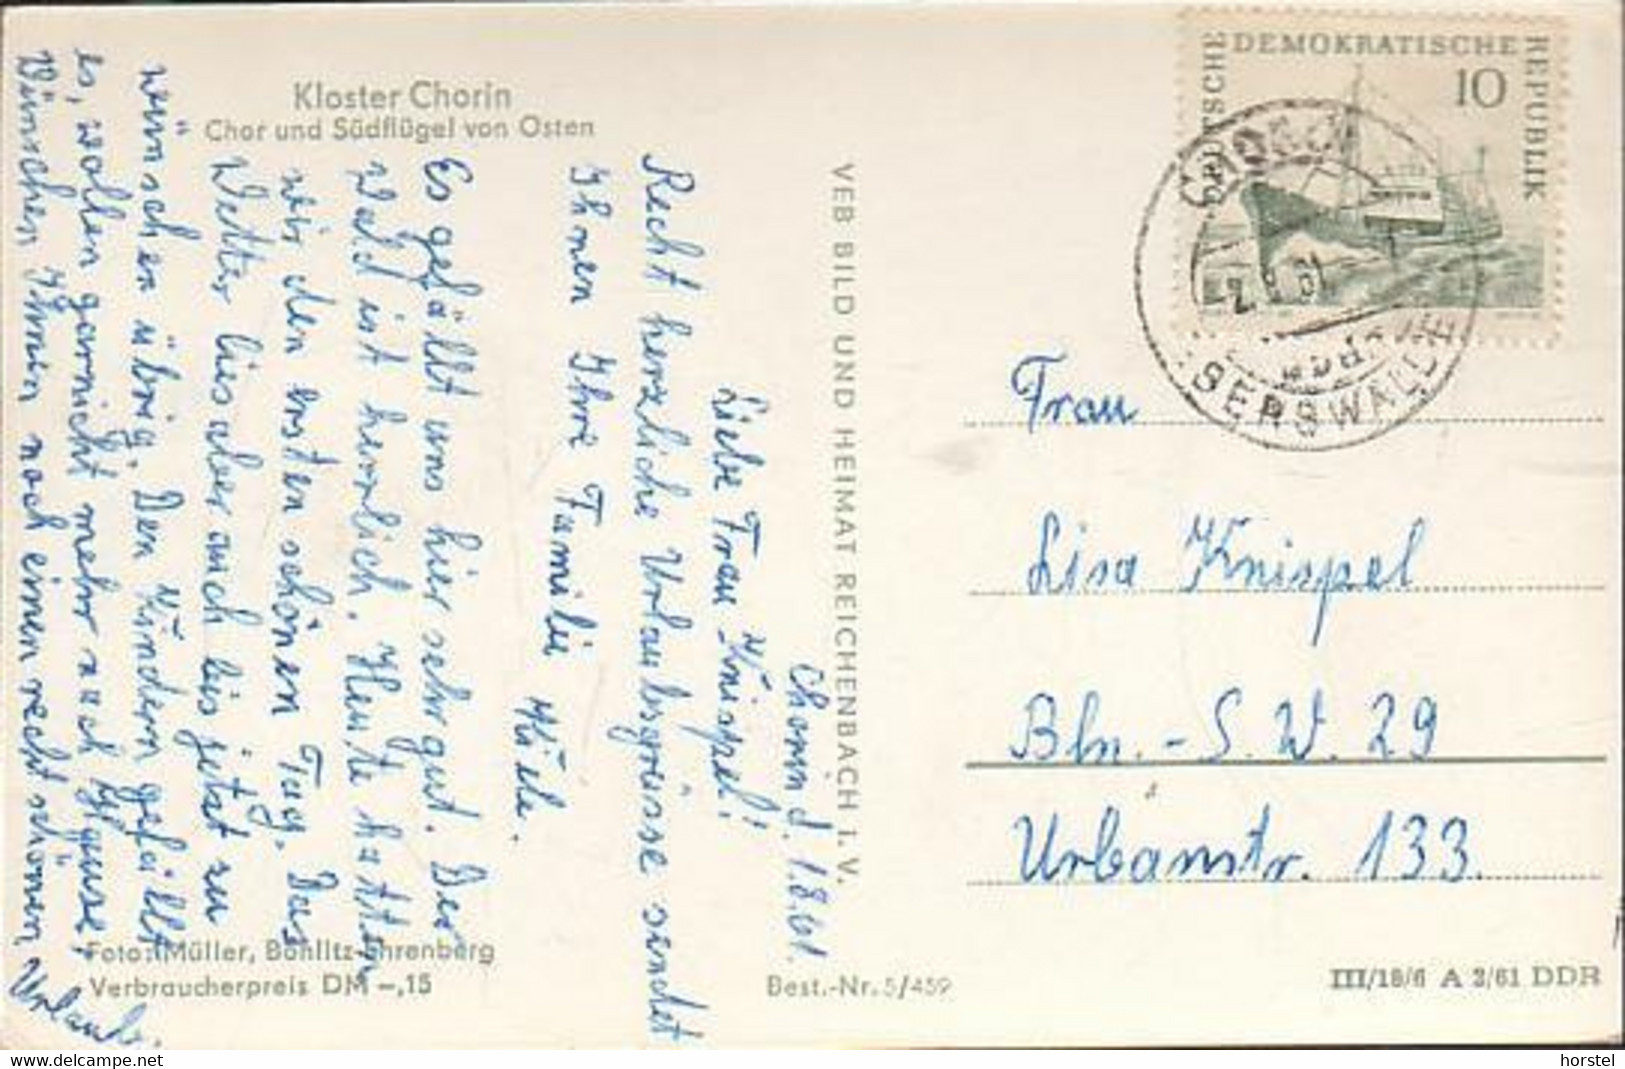 Kloster Chorin
Chor und Südflügel von Osten
Chorin d. 1.8.61.
Liebe Frau Knispel!
Recht herzliche Urlaubsgrüsse sendet
Ihnen Ihre Familie
Es gefällt uns hier sehr gut. Der
Wald ist herrlich. Heute hatten
wir den ersten schönen Tag. Das
Wetter lies aber auch bis jetzt zu
wünschen übrig. Den Kindern gefällt
es, wollen garnicht mehr nach Hause,
Wünschen Ihnen noch einen recht schönen Urlaub.
Foto: Müller, Böhlitz-Ehrenberg
Verbraucherpreis DM -,15
VEB BILD UND HEIMAT REICHENBACH I. V.
Best.-Nr. 5/459
DEUTSCHE DEMOKRATISCHE REPUBLIK
10
CHORIN
2.8.61
EBERSWALDE
Frau
Lisa Knispel
Bln. - S. W. 29
Urbanstr. 133.
III/18/6 A 2/61 DDR
horstel